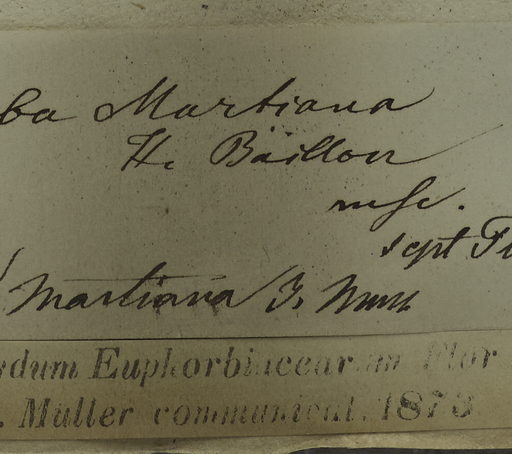 ba Martiana
H. Baillon
msc.
sept
Martiana J. Müll
dum Euphorbiacearum Flor
. Müller communicat. 1873